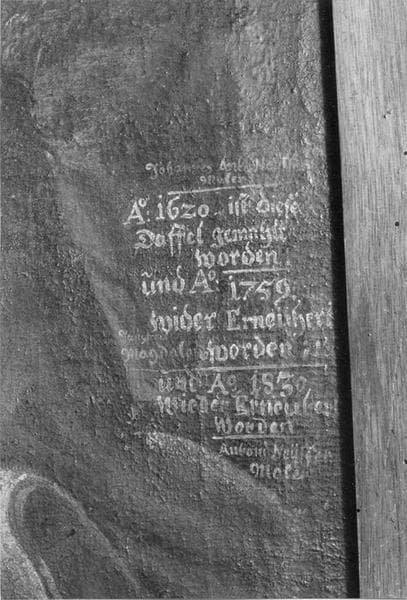 Johannes Anto
Moler
Aọ: 1620 ist diese
Daffel gemahlt
worden
und Aọ:
1759,
wider Erneuhert
Magdale worden,
und Aọ 1830
Wieder Erneuhert
Worden
Antoni
Moler